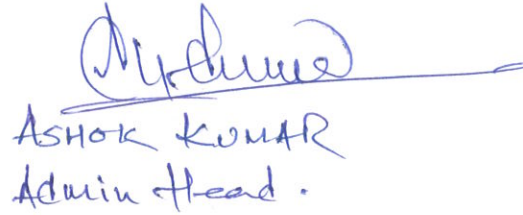 ASHOK KUMAR
Admin Head.